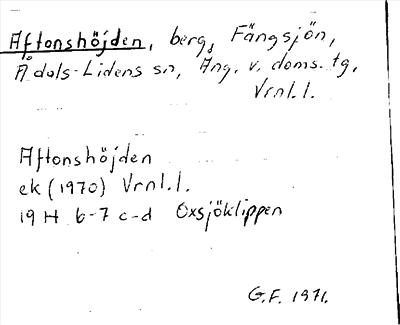 Aftonshöjden, berg, Fängsjön,
Ådals-Lidens sn, Ång. v. doms. tg,
Vrnl. l.
Aftonshöjden
ek (1970) Vrnl. l.
19 H 6-7 c-d Oxsjöklippen
G.F. 1971.